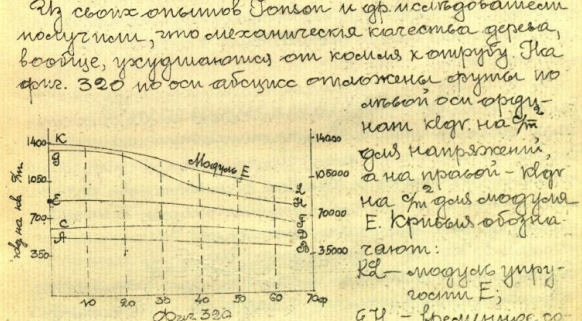 Из своих опытов Jonson и др. исследователи
получили, что механическия качества дерева,
вообще, ухудшаются от комля к отрубу. На
фиг. 320 по оси абсцисс отложены футы по
левой оси орди-
нат klgr. на c/m²
для напряжений,
а на правой - klgr
на c/m² для модуля
E. Кривыя обозна-
чают:
Kd - модуль упру-
гости E;
K
Модуль E
1400
1050
700
350
14000
105000
70000
35000
g
E
C
A
10
20
30
40
50
60
70ф
Фиг 320